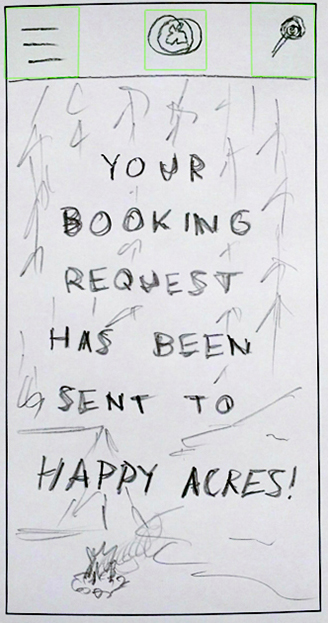 YOUR
BOOKING
REQUEST
HAS BEEN
SENT TO
HAPPY ACRES!